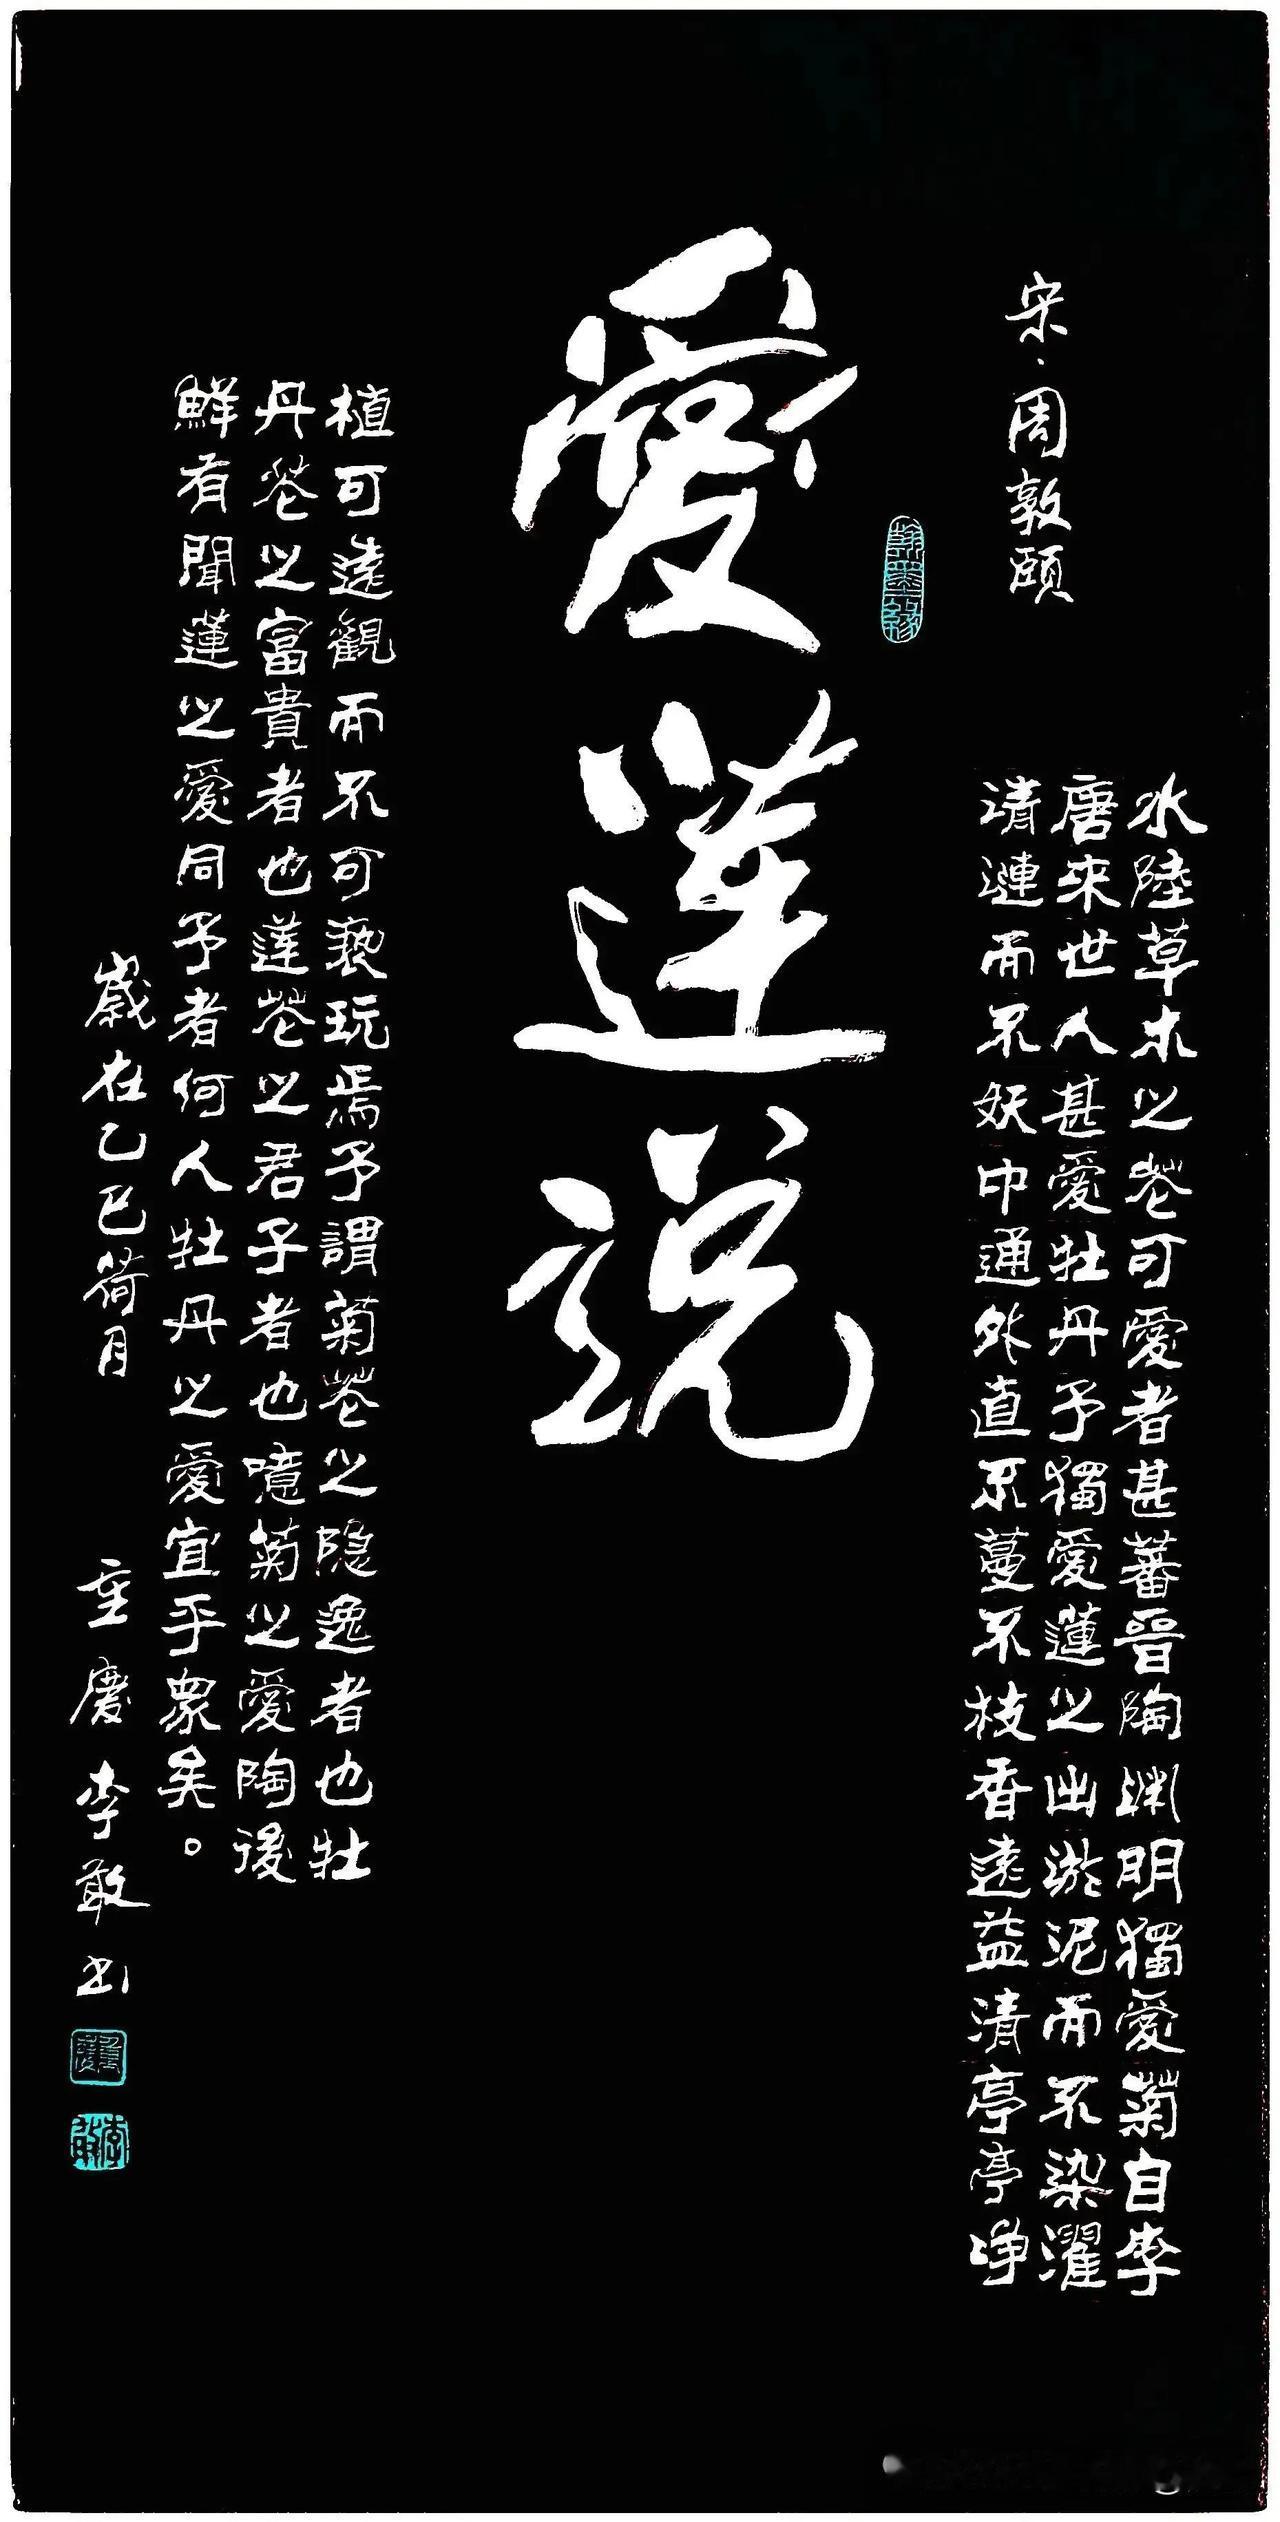 宋·周敦頤
水陸草木之花可愛者甚蕃晉陶渊明獨愛菊自李
唐来世人甚愛牡丹予獨愛蓮之出淤泥而不染濯
清漣而不妖中通外直不蔓不枝香遠益清亭亭净
翰墨緣
愛蓮説
植可遠觀而不可褻玩焉予謂菊花之隐逸者也牡
丹花之富貴者也蓮花之君子者也噫菊之愛陶後
鮮有聞蓮之愛同予者何人牡丹之愛宜乎衆矣。
歲在乙巳荷月 重慶李敢书
李敢